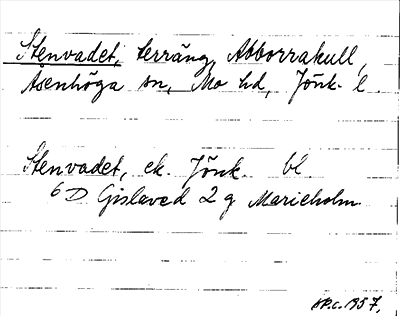 Stenvadet, terräng, Abborrakull,
Åsenhöga sn, Mo hd, Jönk. l.
Stenvadet, ek. Jönk. bl.
6 D Gislaved 2 g Marieholm
1957.